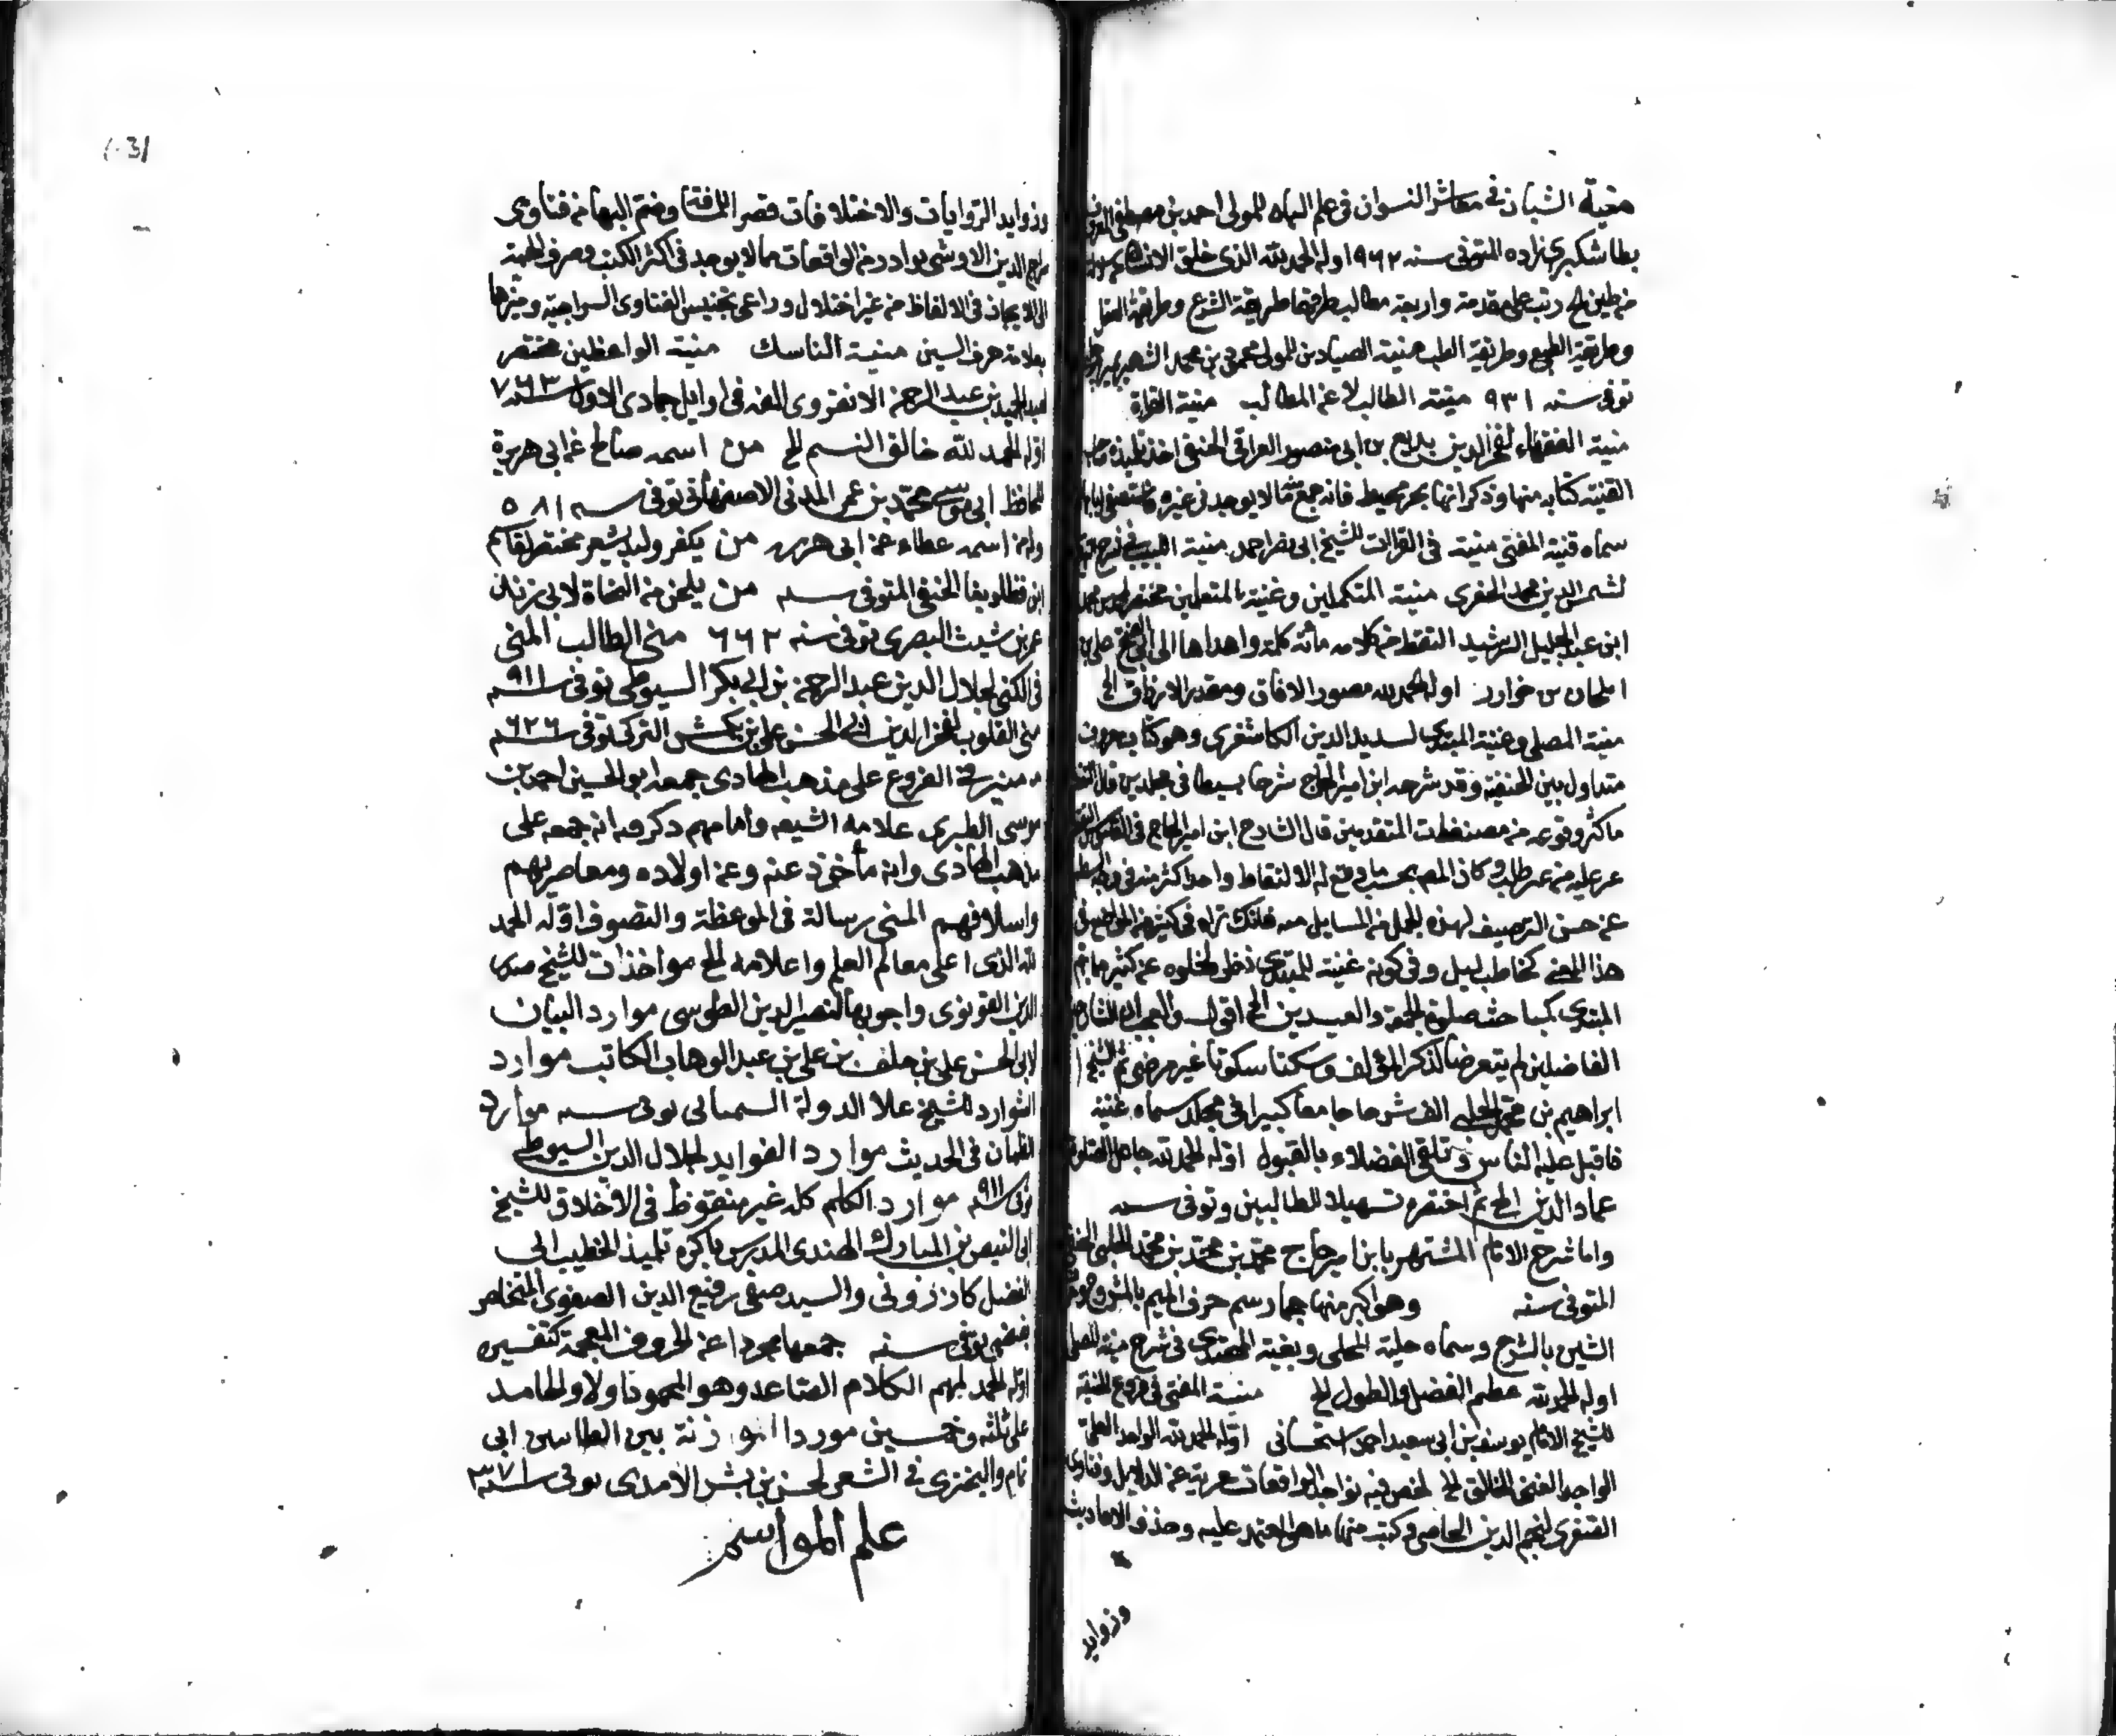 منية الشبان في معاشرة النسوان في علم الباه للمولى احمد بن مصطفى
بطاشكبري زاده المتوفى سنه ٩٦٢ اوله الحمد لله الذي خلق الانسان
من طين الخ رتب على مقدمة واربعة مطالب طرقها طريقة الشرع وطريقة العقل
وطريقة الطبع وطريقة الطب منية الصيادين للمولى محمود بن محمد الشهير
توفى سنه ٩٣١ منية الطالب لاعز المطالب منية القراة
منية الفقهاء لفخر الدين بديع بن ابي منصور العراقي الحنفي اخذ تلميذه صاحب
القنية كتابه منها وذكر انها بحر محيط فانه جمع ما لا يوجد في غيره
سماه قنية المفتي منية في القراات للشيخ ابي نصر احمد منية اللبيب في شرح
لشمس الدين محمد الحفري منية المتكملين وغنية المتعلمين مختصر
ابن عبد الجليل الرشيد التقط من كلامه مائة كلمة واهداها الى ابي الفتح
اوله الحمد لله مصور الافاق ومقدر الارزاق الخ
منية المصلي وغنية المبتدي لسديد الدين الكاشغري وهو كتاب معروف
متداول بين الحنفية وقد شرحه ابن امير الحاج شرحا بسيطا في مجلدين
ماكثر وقوعه من مصنفات المتقدمين قال الشارح ابن امير الحاج
وكان المص بحسب ما وقع له الالتقاط واحدا كثر منه في
عن حسن الترصيف لهذه الجمل من المسايل منه فانك تراه في كثير من المواضع في
هذا المعنى كحاطب ليل وفي كونه غنية للمبتدي نظر لخلوه عن كثير مما
المبتدي كمباحث صلوة الجمعة والعيدين الخ اقول والعجب ان الشارحين
الفاضلين لم يتعرضا لذكر المؤلف وسكتا سكوتا غير مرضي ثم الشيخ
ابراهيم بن محمد الحلبي الف شرحا جامعا كبيرا في مجلد سماه غنية
فاقبل عليه الناس وتلقى الفضلاء بالقبول اوله الحمد لله جاعل الصلوة
عماد الدين الخ ثم اختصره تسهيلا للطالبين وتوفى سنه
واما شرح الامام المشتهر بابن امير حاج محمد بن محمد بن محمد الحلبي الحنفي
المتوفى سنه وهو اكبر منهما رسم حرف الميم بالمشروح
الشين بالشرح وسماه حلية المحلي وبغية المهتدي في شرح منية المصلي
اوله الحمد لله عظيم الفضل والطول الخ منية المفتي في فروع الحنفية
للشيخ الامام يوسف بن ابي سعيد احمد السجستاني اوله الحمد لله الواحد العلي
الواجد الغني الخالق الخ لخص فيه نوادر الواقعات عرية عن الدلايل وفتاوى
لنجم الدين الخاصي وكتب منها ما هو المعتمد عليه وحذف الاحاديث
وزوايد
وزوايد الروايات والاختلافات قصر المسافة وضم اليها من فتاوى
سراج الدين الاوشي نوادر من الواقعات مالا يوجد في اكثر الكتب وصرف الهمة
الى الايجاز في الالفاظ من غير اختلال وراعى تجنيس الفتاوى السراجية وميزها
بعلامة حرف السين منية الناسك منية الواعظين مختصر
لعبد المجيد بن عبد الرحمن الانقروي الفه في اوايل جمادى الاولى سنه ٧٦٣
اوله الحمد لله خالق النسم الخ من اسمه صالح عن ابي هريرة
للحافظ ابي موسى محمد بن عمر المدني الاصفهاني توفى سنه ٥٨١
وله من اسمه عطاء عن ابي هريره من يكفر ولم يشعر مختصر لقاسم
ابن قطلوبغا الحنفي المتوفى سنه من يلحن من النحاة لابي زيد
عمر بن شبث البصري توفى سنه ٦٦٢ منى الطالب المنى
في الكنى لجلال الدين عبد الرحمن بن ابي بكر السيوطي توفى سنه ٩١١
منى القلوب لفخر الدين ابي الحسن علي بن بكمش التركي توفى سنه ٦٢٦
منير في الفروع على مذهب الهادي جمعه ابو الحسين احمد بن
موسى الطبري علامة الشيعه وامامهم ذكر فيه انه جمعه على
مذهب الهادي وانه مأخوذ عنه وعن اولاده ومعاصريهم
واسلافهم المنى رسالة في الموعظة والتصوف اوله الحمد
لله الذي اعلى معالم العلم واعلامه الخ مواخذات للشيخ صدر
الدين القونوي واجوبها لنصير الدين الطوسي موارد البيان
لابي الحسن علي بن خلف بن علي بن عبد الوهاب الكاتب موارد
الشوارد للشيخ علا الدولة السمناني توفى سنه موارد
الظمان في الحديث موارد الفوايد لجلال الدين السيوطي
توفى سنه ٩١١ موارد الكلم كله غير منقوط في الاخلاق للشيخ
ابي الفيض بن المبارك الهندي المدرس باكره تلميذ الخطيب ابي
الفضل كازروني والسيد صفي رفيع الدين الصفوي المتخلص
بفيضي توفى سنه جمعها مجردا عن الحروف المعجمة كتفسيره
اوله الحمد لملهم الكلام الصاعد وهو المحمود اولا والحامد
على ثلثة وخمسين موردا الموازنة بين الطاسين ابي
تمام والبحتري في الشعر لحسن بن بشر الامدي توفى سنه ٣٧١
علم المواسم